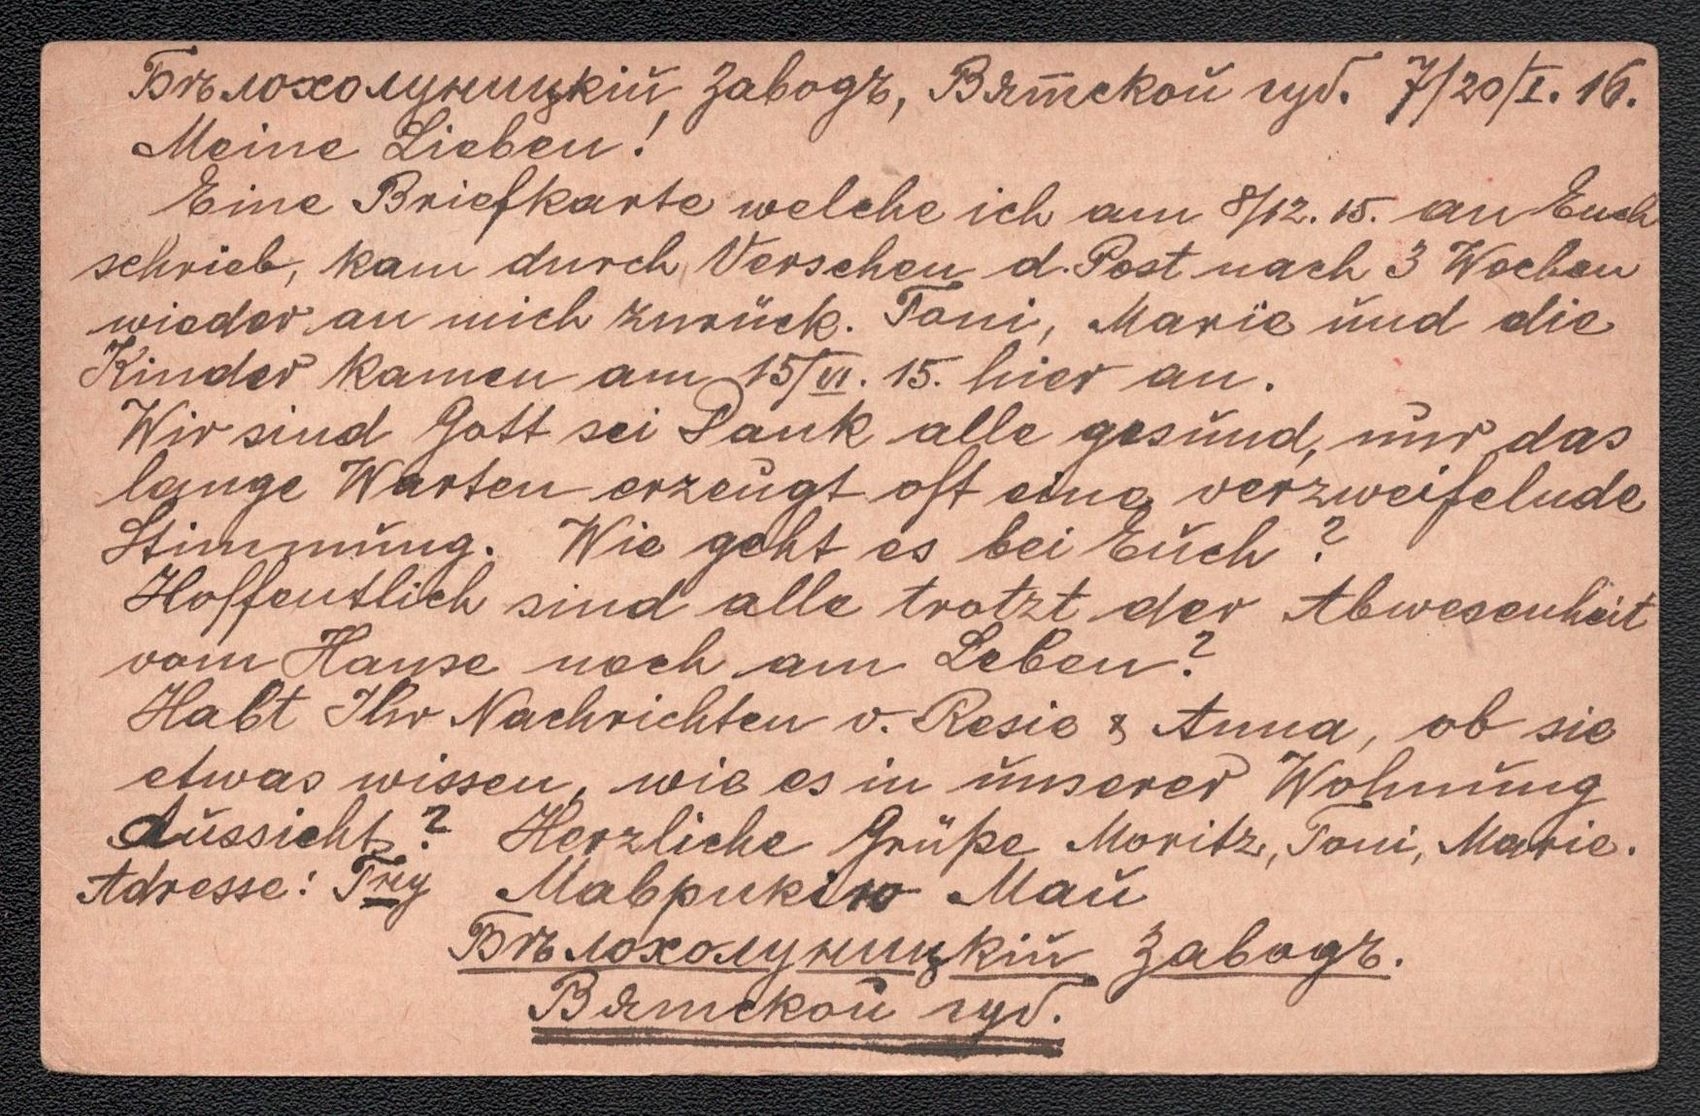 Бѣлохолуницкій Заводъ, Вятской губ. 7/20/I. 16.
Meine Lieben!
Eine Briefkarte welche ich am 8/12. 15. an Euch
schrieb, kam durch Versehen d. Post nach 3 Wochen
wieder an mich zurück. Toni, Marie und die
Kinder kamen am 15/VI. 15. hier an.
Wir sind Gott sei Dank alle gesund, nur das
lange Warten erzeugt oft eine verzweifelnde
Stimmung. Wie geht es bei Euch?
Hoffentlich sind alle trotzt der Abwesenheit
vom Hause noch am Leben?
Habt Ihr Nachrichten v. Resie & Anna, ob sie
etwas wissen, wie es in unserer Wohnung
Aussicht? Herzliche Grüße Moritz, Toni, Marie.
Adresse: Маврикію Май
Бѣлохолуницкій Заводъ.
Вятской губ.